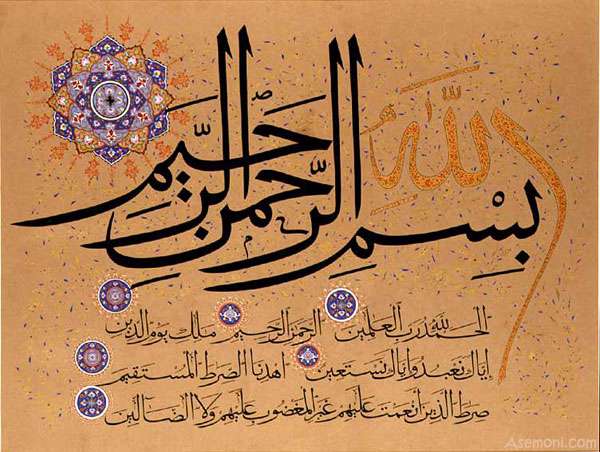 بسم الله الرحمن الرحيم
الحمد لله رب العلمين الرحمن الرحيم ملك يوم الدين
إياك نعبد وإياك نستعين اهدنا الصرط المستقيم
صرط الذين أنعمت عليهم غير المغضوب عليهم ولا الضالين
Asemoni.com